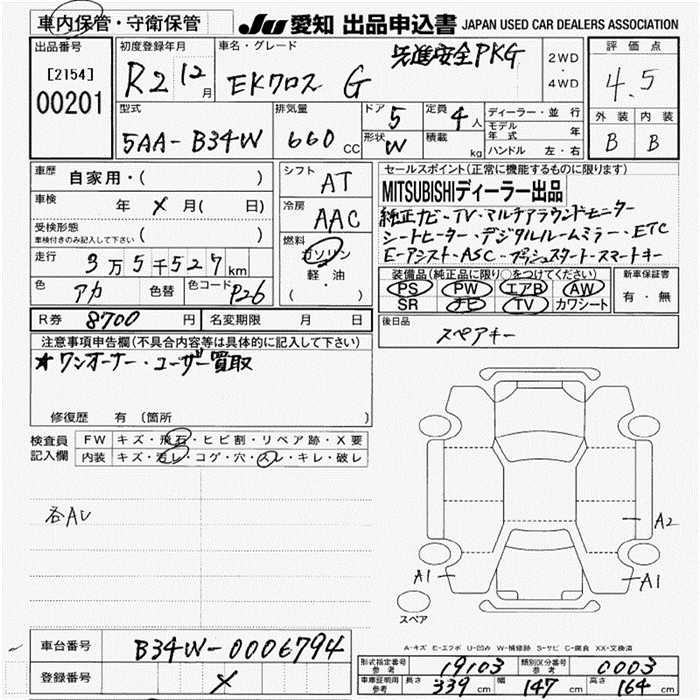 車内保管・守衛保管
JU 愛知 出品申込書 JAPAN USED CAR DEALERS ASSOCIATION
出品番号
[2154]
00201
初度登録年月
R2 12月
車名・グレード
EKクロス G
先進安全PKG
2WD
・
4WD
評価点
4.5
外装 内装
B B
型式
5AA-B34W
排気量
660 CC
ドア 5
形状 W
定員 4人
積載 kg
ディーラー・並行
モデル年式 年
ハンドル 左・右
車歴 自家用・( )
車検 年 × 月( 日)
受検形態
車検付きのみ記入して下さい ( )
走行 3万5千527km
色 アカ 色替 色コード P26
シフト AT
冷房 AAC
燃料
ガソリン
軽・油
( ・ )
セールスポイント(正常に機能するものに限ります)
MITSUBISHIディーラー出品
純正ナビ・TV・マルチアラウンドモニター
シートヒーター・デジタルルームミラー・ETC
E-アシスト・ASC・プッシュスタート・スマートキー
装備品(純正品に限り○をつけてください)
PS PW エアB AW
SR ナビ TV カワシート
新車保証書
有・無
R券 8700 円 名変期限 月 日
後日品
スペアキー
注意事項申告欄(不具合内容等は具体的に記入して下さい)
★ワンオーナー・ユーザー買取
修復歴 有 (箇所 )
検査員
記入欄
FW キズ・飛石・ヒビ割・リペア跡・X要
内装 キズ・汚レ・コゲ・穴・スレ・キレ・破レ
各AU
A2
A1
A1
スペア
A-キズ E-エクボ U-凹み W-補修跡 S-サビ C-腐食 XX-交換済
車台番号 B34W-0006794
登録番号 ×
型式指定番号 参考 19103 類別区分番号 参考 0003
車庫証明用 参考 長さ 339 cm 幅 147 cm 高さ 164 cm